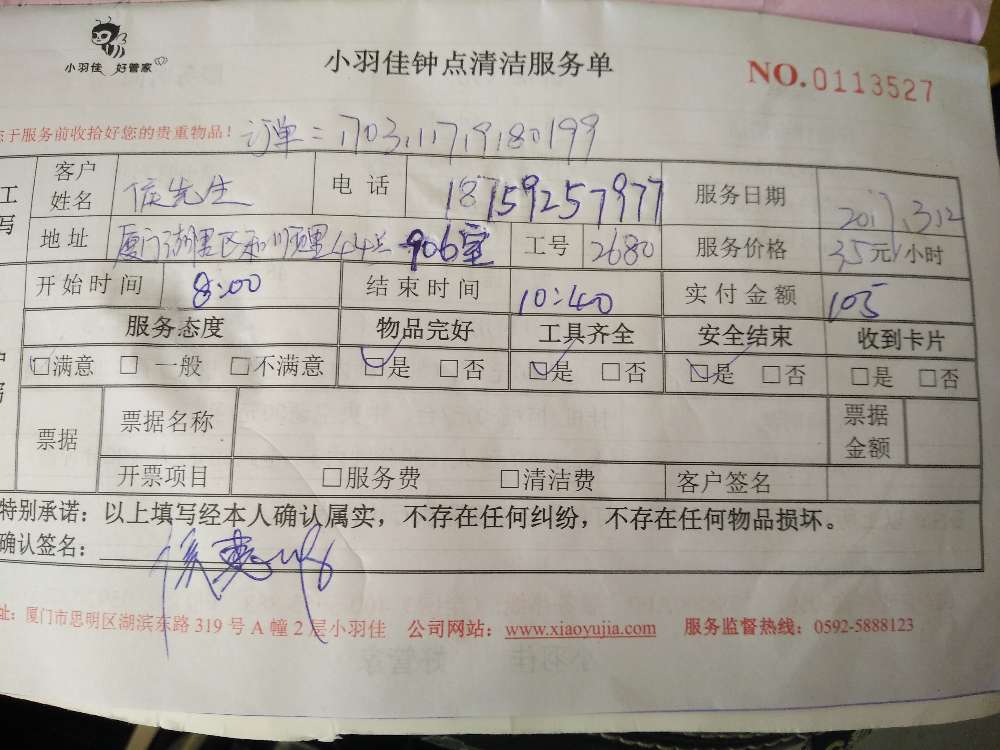 小羽佳 好管家
小羽佳钟点清洁服务单
NO.0113527
于服务前收拾好您的贵重物品！ 订单：1703117980199
工 客户姓名 先生 电话 18759257977 服务日期 2017.3.12
写 地址 厦门湖里区 44 906室 工号 2680 服务价格 35元/小时
开始时间 8:00 结束时间 10:40 实付金额 105
服务态度 物品完好 工具齐全 安全结束 收到卡片
☑满意 □一般 □不满意 ☑是 □否 ☑是 □否 ☑是 □否 □是 □否
票据 票据名称 票据金额
开票项目 □服务费 □清洁费 客户签名
特别承诺：以上填写经本人确认属实，不存在任何纠纷，不存在任何物品损坏。
确认签名：
址：厦门市思明区湖滨东路 319 号 A 幢 2 层小羽佳 公司网站：www.xiaoyujia.com 服务监督热线：0592-5888123